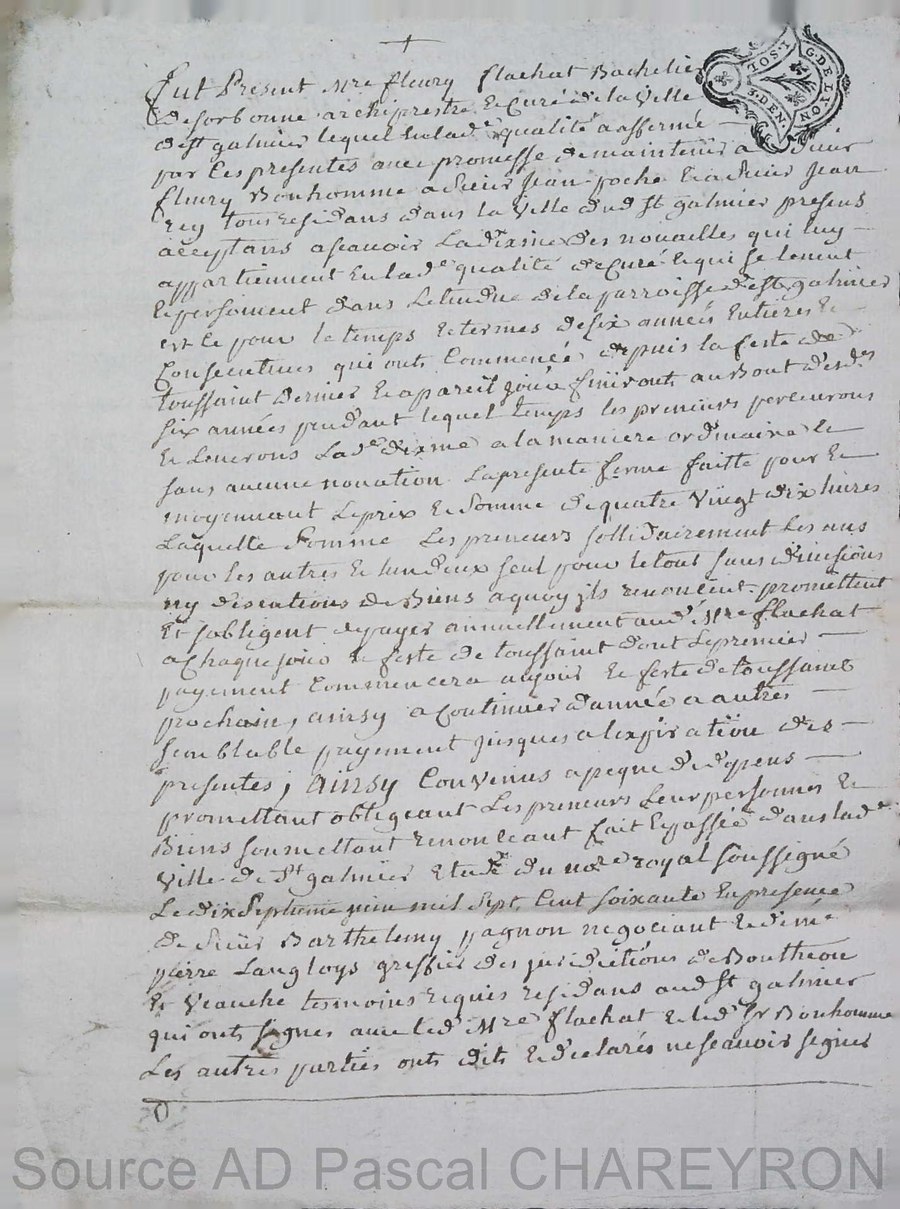 +
TOS.I G.DE LYON 3.DEN.
Fut Present Mre fleury flachat Bachelie
de sorbonne archiprestre & Curé de la Ville
de st galmier lequel En lade qualité a affermé
par Ces presentes avec promesse de maintenir a Sieur
fleury Bonhomme a Sieur Jean poche & a Sieur Jean
rey tous residans dans la Ville dud St galmier presens
acceptans ascavoir La dixme des novailles qui luy
appartiennent En lade qualité de Curé & qui se levent
& persoivent dans Letendue de la parroisse de st galmier
est Ce pour le temps & termes de six années Entieres &
Consecutives qui ont Commencé depuis la feste de
toussaint dernier & a pareil jour finiront au Bout desds
six années pendant lequel temps les preneurs percevrons
& Leverons Lade dixme a la maniere ordinaire &
sans aucune novation La presente ferme faitte pour &
moyennant Le prix & Somme de quatre Vingt dix livres
Laquelle Somme Les preneurs sollidairement Les uns
pour les autres & lun deux seul pour le tout sans division
ny discutions de Biens a quoy ils renoncent promettent
Et sobligent de payer annuellement aud Mre flachat
a Chaque jour & feste de toussaint dont Le premier
payement Commencera au jour & feste de toussaint
prochain, ainsy a Continuer dannée a autres
semblable payement jusques a lexpiration des
presentes, Ainsy Convenus a peyne de depens
promettant obligeant Les preneurs Leur personnes &
Biens soumettant renonceant fait & passé dans lade
Ville de St galmier Etude du nore royal soussigné
Le dix Septieme juin mil Sept Cent soixante En presence
de Sieur Barthelemy pagnon negociant & de me
pierre Langloys greffier des juridictions de Boutheon
Et Veauche temoins requis residans aud St galmier
qui ont signes avec led Mre flachat & led Sr Bonhomme
Les autres parties ont dits & declarés ne scavoir signer
Source AD Pascal CHAREYRON